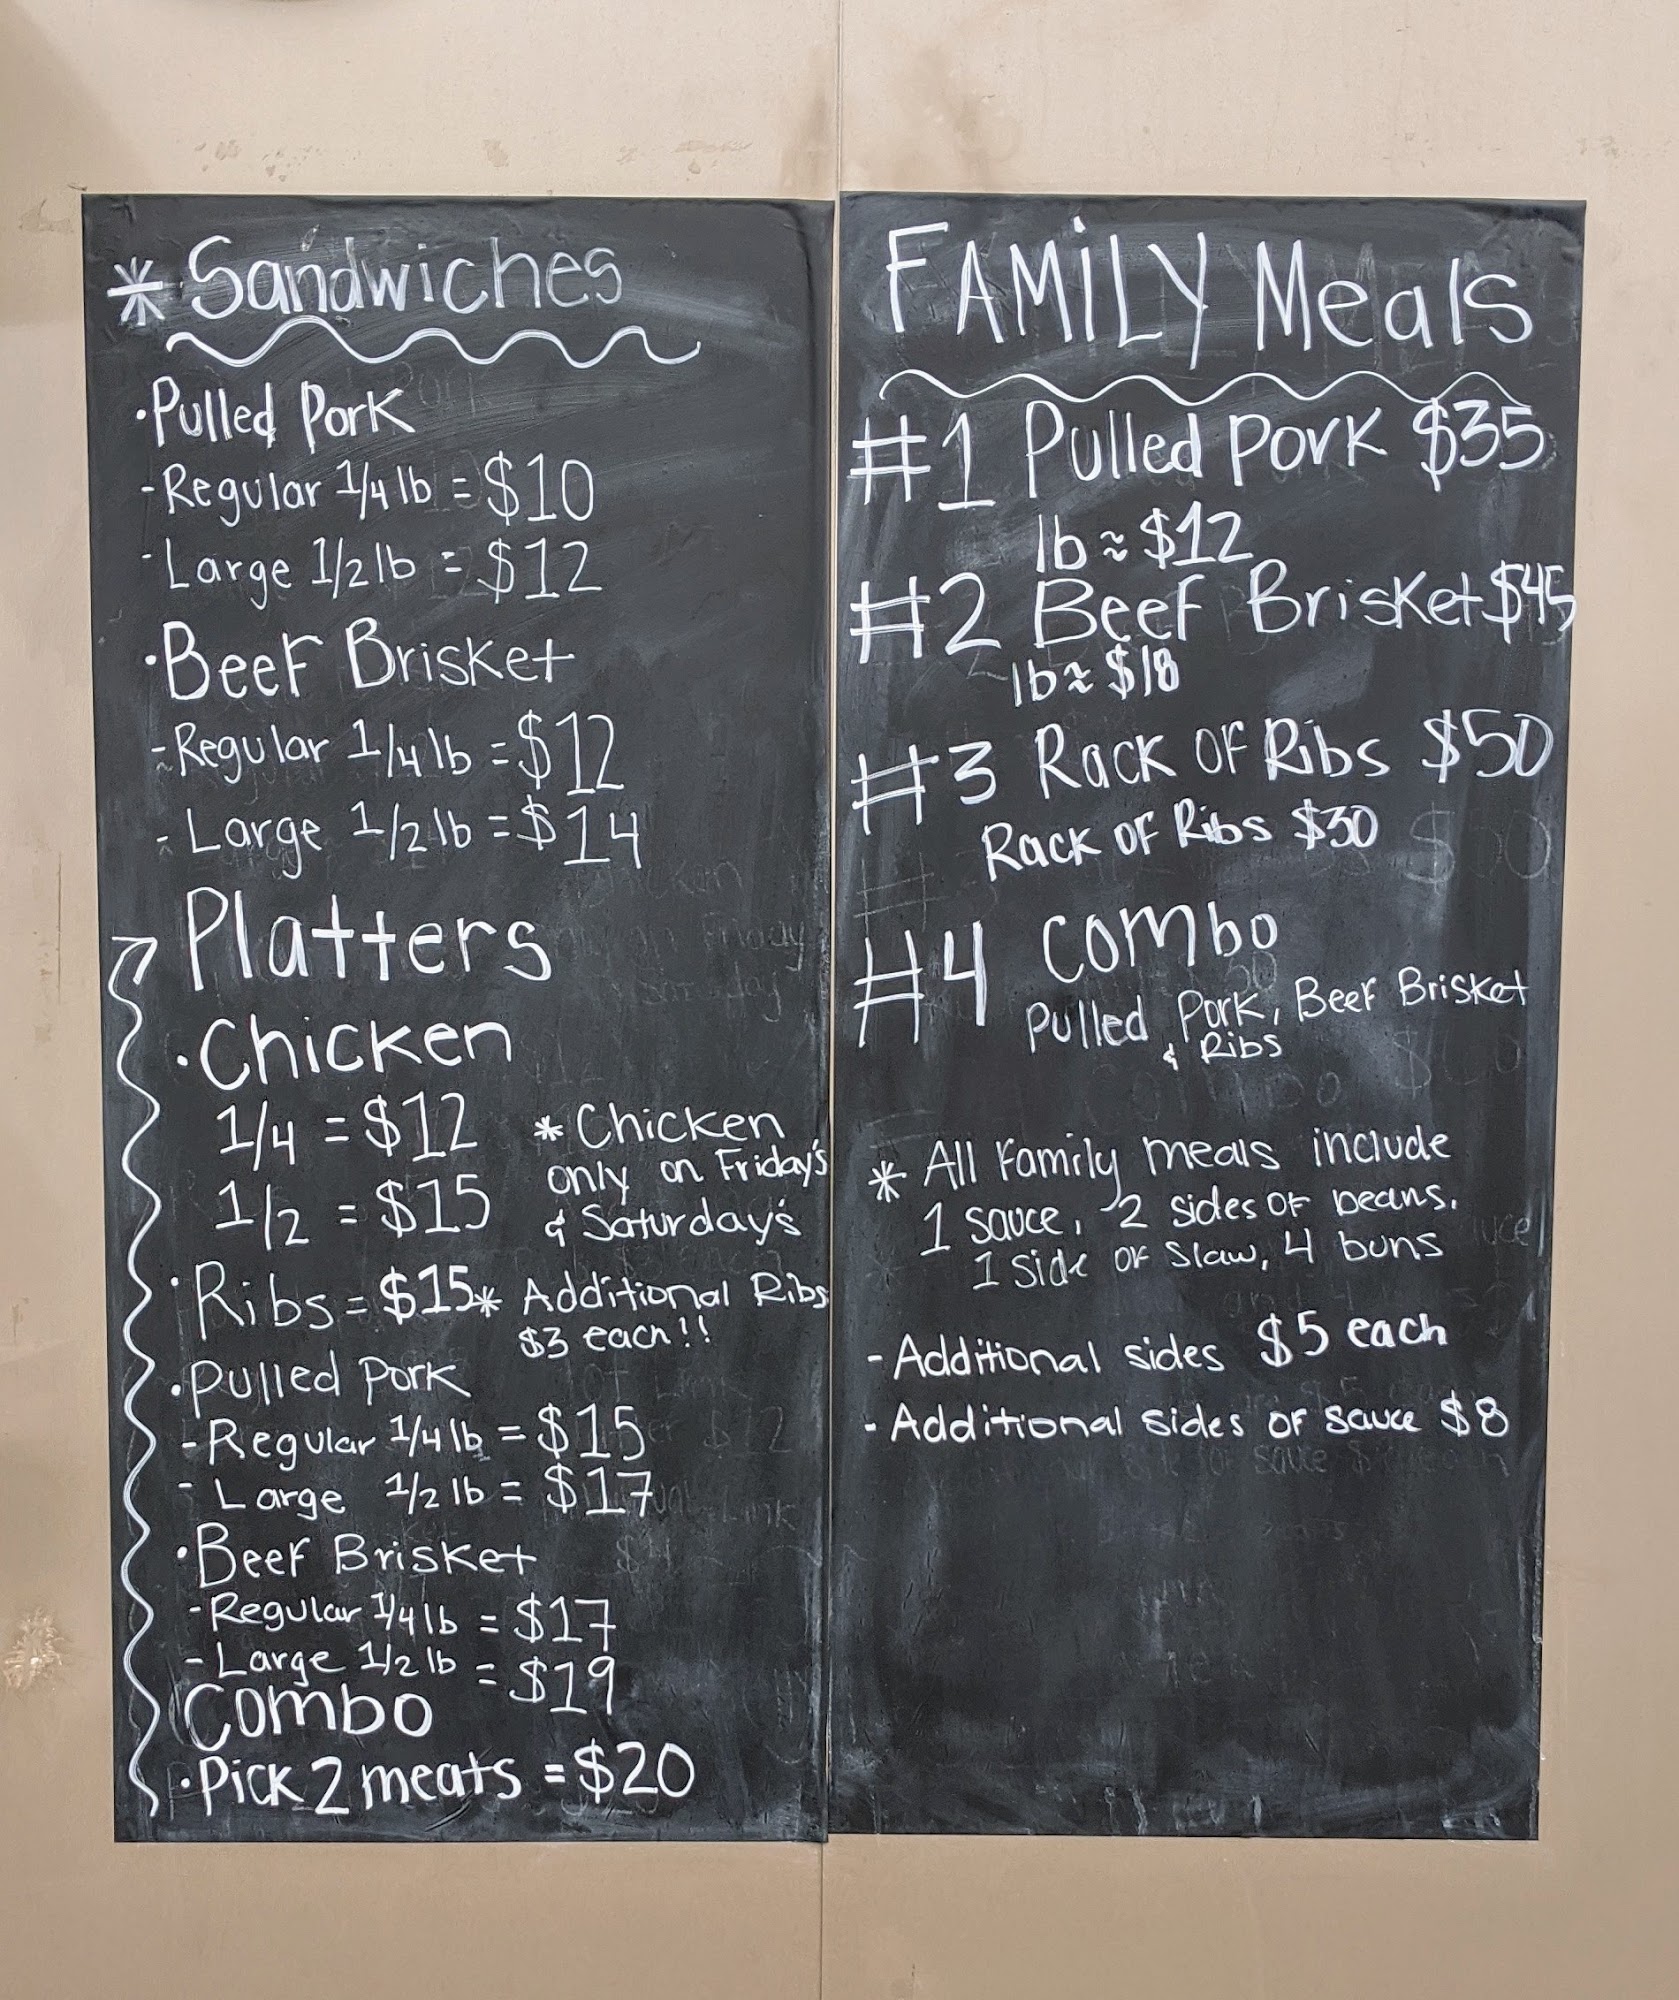 * Sandwiches
• Pulled Pork
- Regular 1/4 lb = $10
- Large 1/2 lb = $12
• Beef Brisket
- Regular 1/4 lb = $12
- Large 1/2 lb = $14
Platters
• Chicken
1/4 = $12
1/2 = $15
* Chicken
only on Friday's
& Saturday's
• Ribs = $15 * Additional Ribs
$3 each!!
• Pulled Pork
- Regular 1/4 lb = $15
- Large 1/2 lb = $17
• Beef Brisket
- Regular 1/4 lb = $17
- Large 1/2 lb = $19
Combo
• Pick 2 meats = $20
FAMiLY Meals
#1 Pulled Pork $35
lb ≈ $12
#2 Beef Brisket $45
lb ≈ $18
#3 Rack of Ribs $50
Rack of Ribs $30
#4 Combo
Pulled Pork, Beef Brisket
& Ribs
* All Family meals include
1 sauce, 2 sides of beans,
1 side of slaw, 4 buns
- Additional sides $5 each
- Additional sides of sauce $8